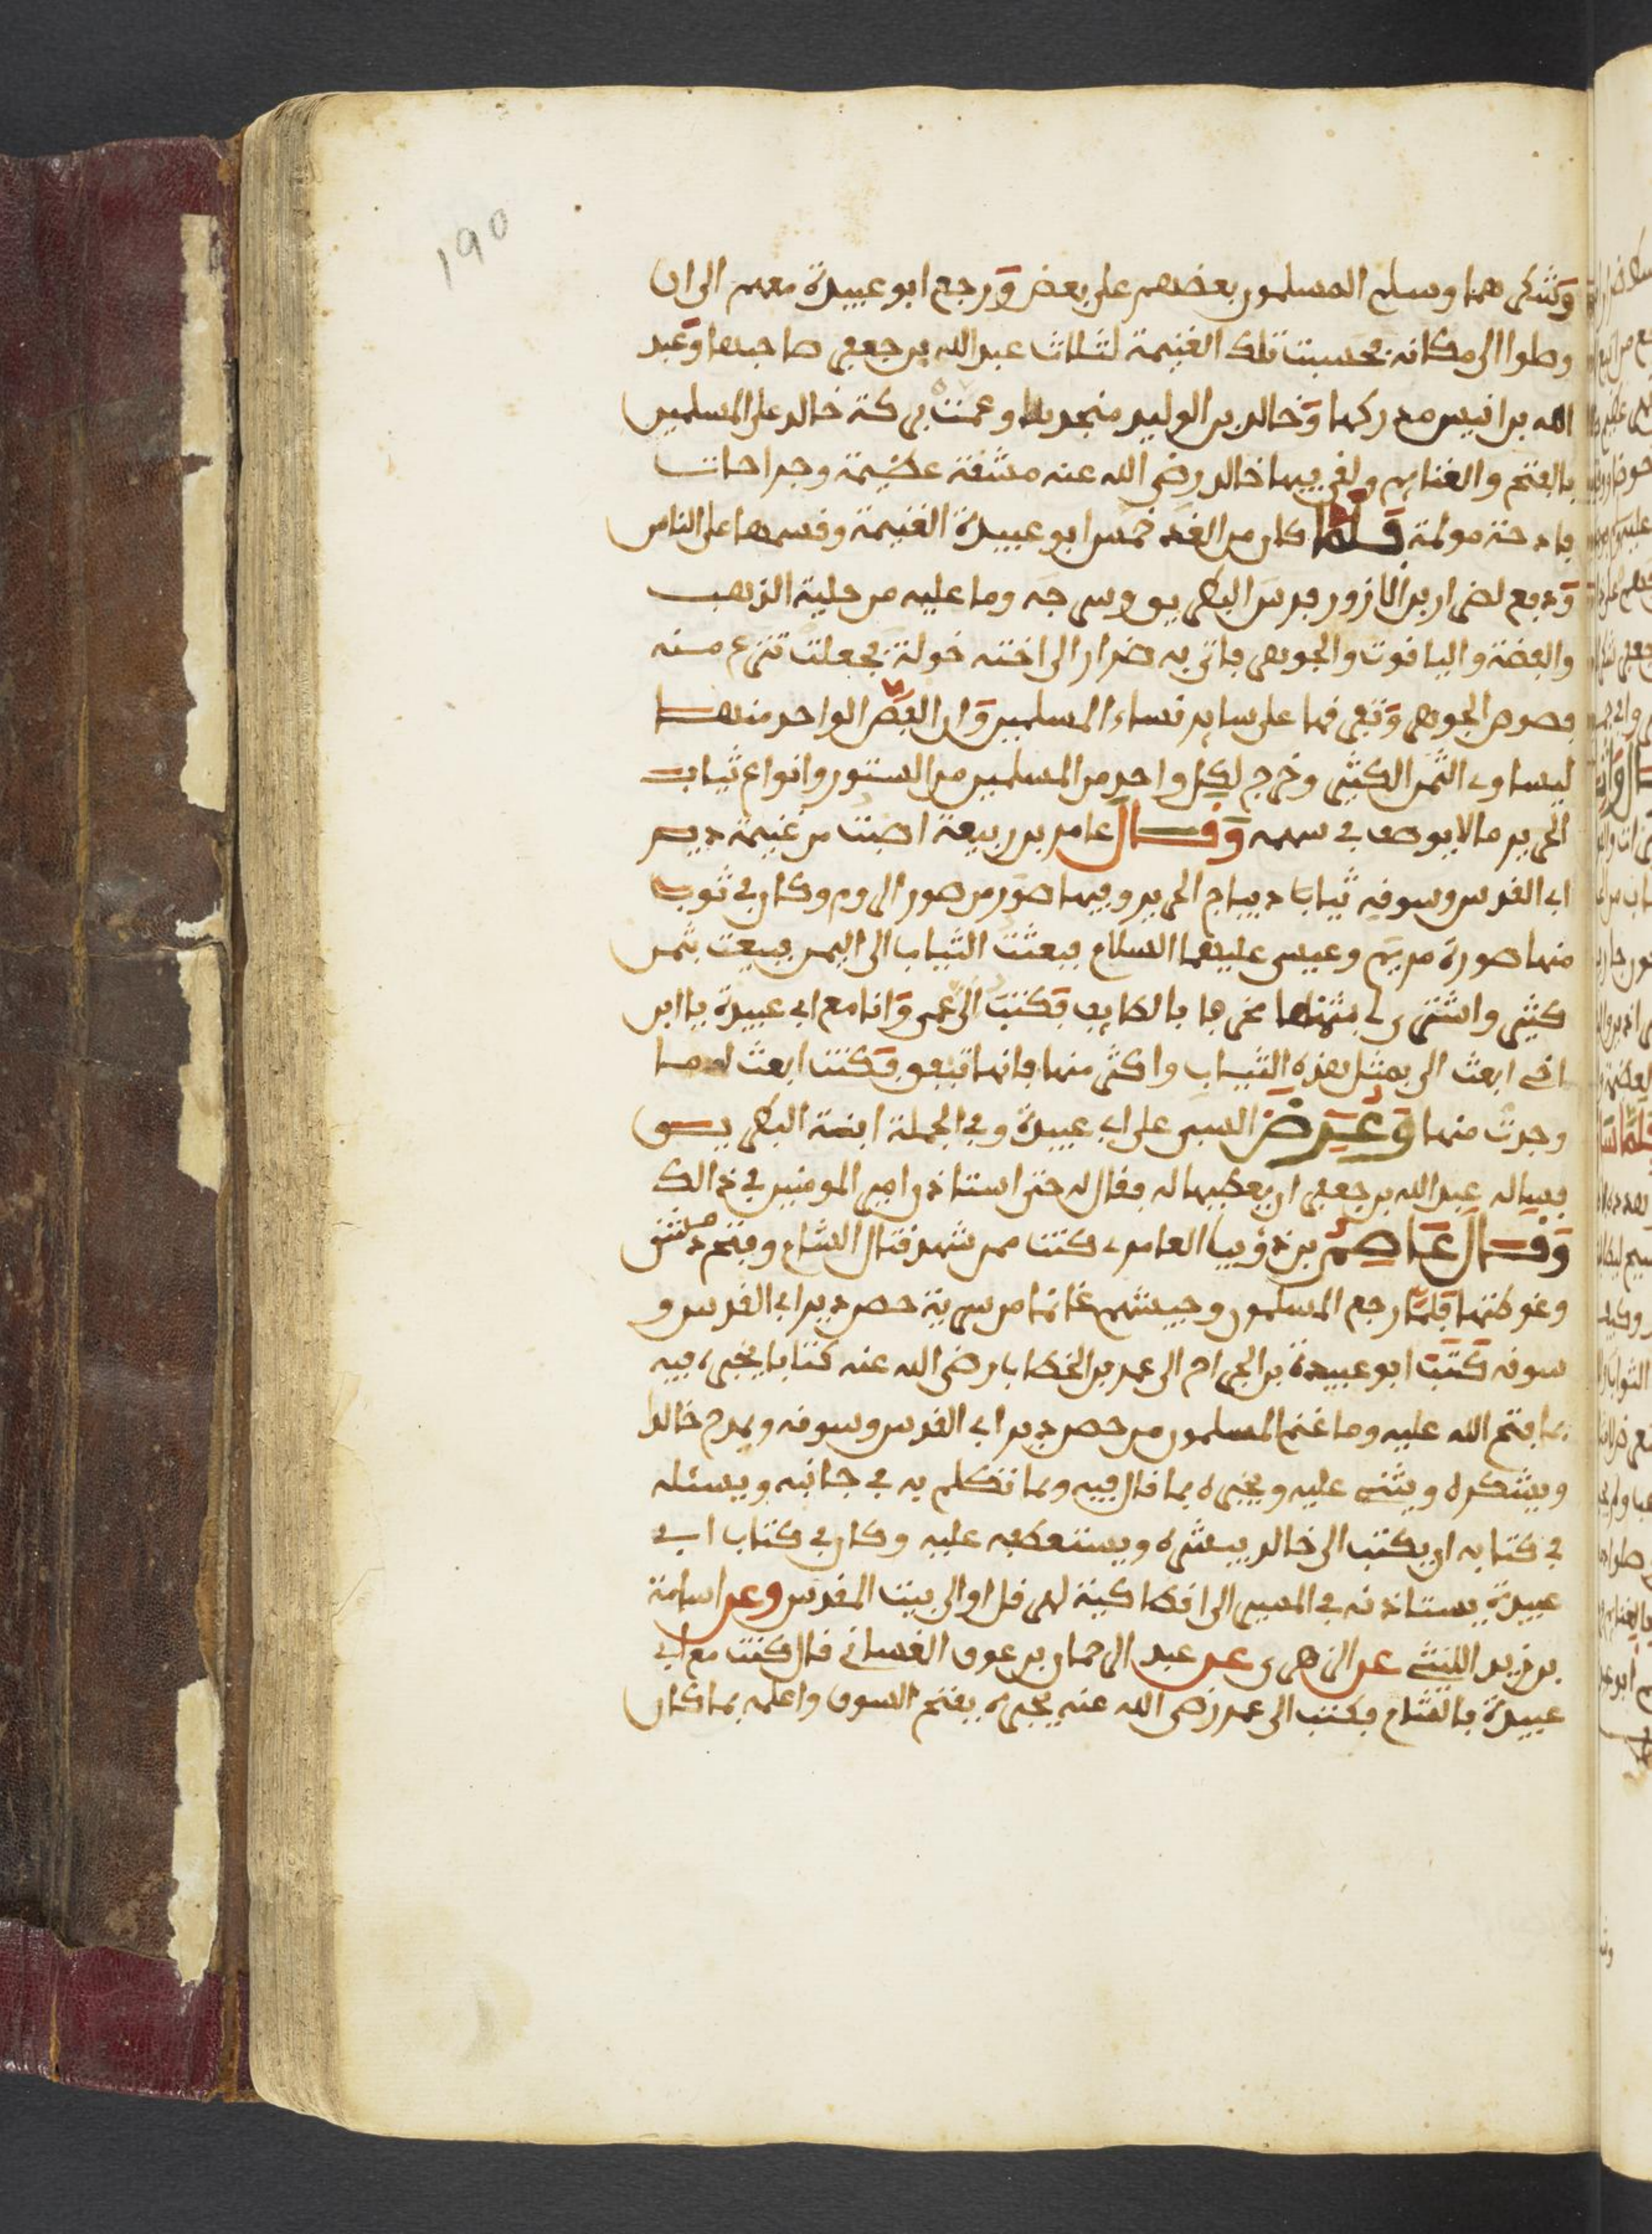 190
وشكرهما وسلم المسلمون بعضهم على بعض ورجع ابو عبيدة معهم الى ان
وصلوا الى مكانه فحسبت تلك الغنيمة لثلاث عبد الله بن جعفر صاحبها وعبد
الله بن انيس مدركها وخالد بن الوليد منجدها وعمت بركة خالد على المسلمين
بالفتح والغنايم ولقى فيها خالد رضي الله عنه مشقة عظيمة وجراحات
فادحة مولمة فلما كان من الغد خمس ابو عبيدة الغنيمة وقسمها على الناس
ودفع لضرار بن الازور فرس البطريق وسرجه وما عليه من حلية الذهب
والفضة والياقوت والجوهر فاتى به ضرار الى اخته خولة فجعلت تنزع منه
فصوص الجوهر وتفرقها على ساير نساء المسلمين وان الفص الواحد منها
ليساوى الثمن الكثير وخرج لكل واحد من المسلمين من الستور وانواع ثياب
الحرير ما لا يوصف في سهمه وقال عامر بن ربيعة اصبت من غنيمة دير
ابى القدس وسوقه ثيابا ديباج الحرير وفيها صور من صور الروم وكان في ثوب
منها صورة مريم وعيسى عليهما السلام فبعثت الثياب الى اليمن فبيعت بثمن
كثير واشترى لى بثمنها بالطايف فكتب الى عمى وانا مع ابى عبيدة يا ابن
اخى ابعث الى بمثل هذه الثياب واكثر منها فانها تنفق فكنت ابعث له ما
وجدت منها وعرض السبى على ابى عبيدة وفي الجملة ابنة البطريق
فساله عبد الله بن جعفر ان يعطيها له فقال له حتى استاذن امير المومنين في ذالك
وقال عاصم بن ذؤيب العامرى كنت ممن شهد قتال الشام وفتح دمشق
وغوطتها فلما رجع المسلمون وجيشهم غانما من سرية حصن دير ابى القدس و
سوقه كتب ابو عبيدة بن الجراح الى عمر بن الخطاب رضى الله عنه كتابا يخبره فيه
بما فتح الله عليه وما غنم المسلمون من حصن دير ابى القدس وسوقه ويمدح خالدا
ويشكره ويثنى عليه ويخبره بما قال فيه وما تكلم به في جانبه ويسئله
في كتابه ان يكتب الى خالد يبشره ويستعطفه عليه وكان في كتاب ابى
عبيدة يستاذنه في المسير الى انطاكية لهرقل او الى بيت المقدس وعن اسامة
بن زيد الليثى عن الزهرى عن عبد الرحمان بن عوف الغسانى قال كنت مع ابى
عبيدة بالشام فكتب الى عمر رضى الله عنه يخبره بفتح السوق واعلمه بما كان